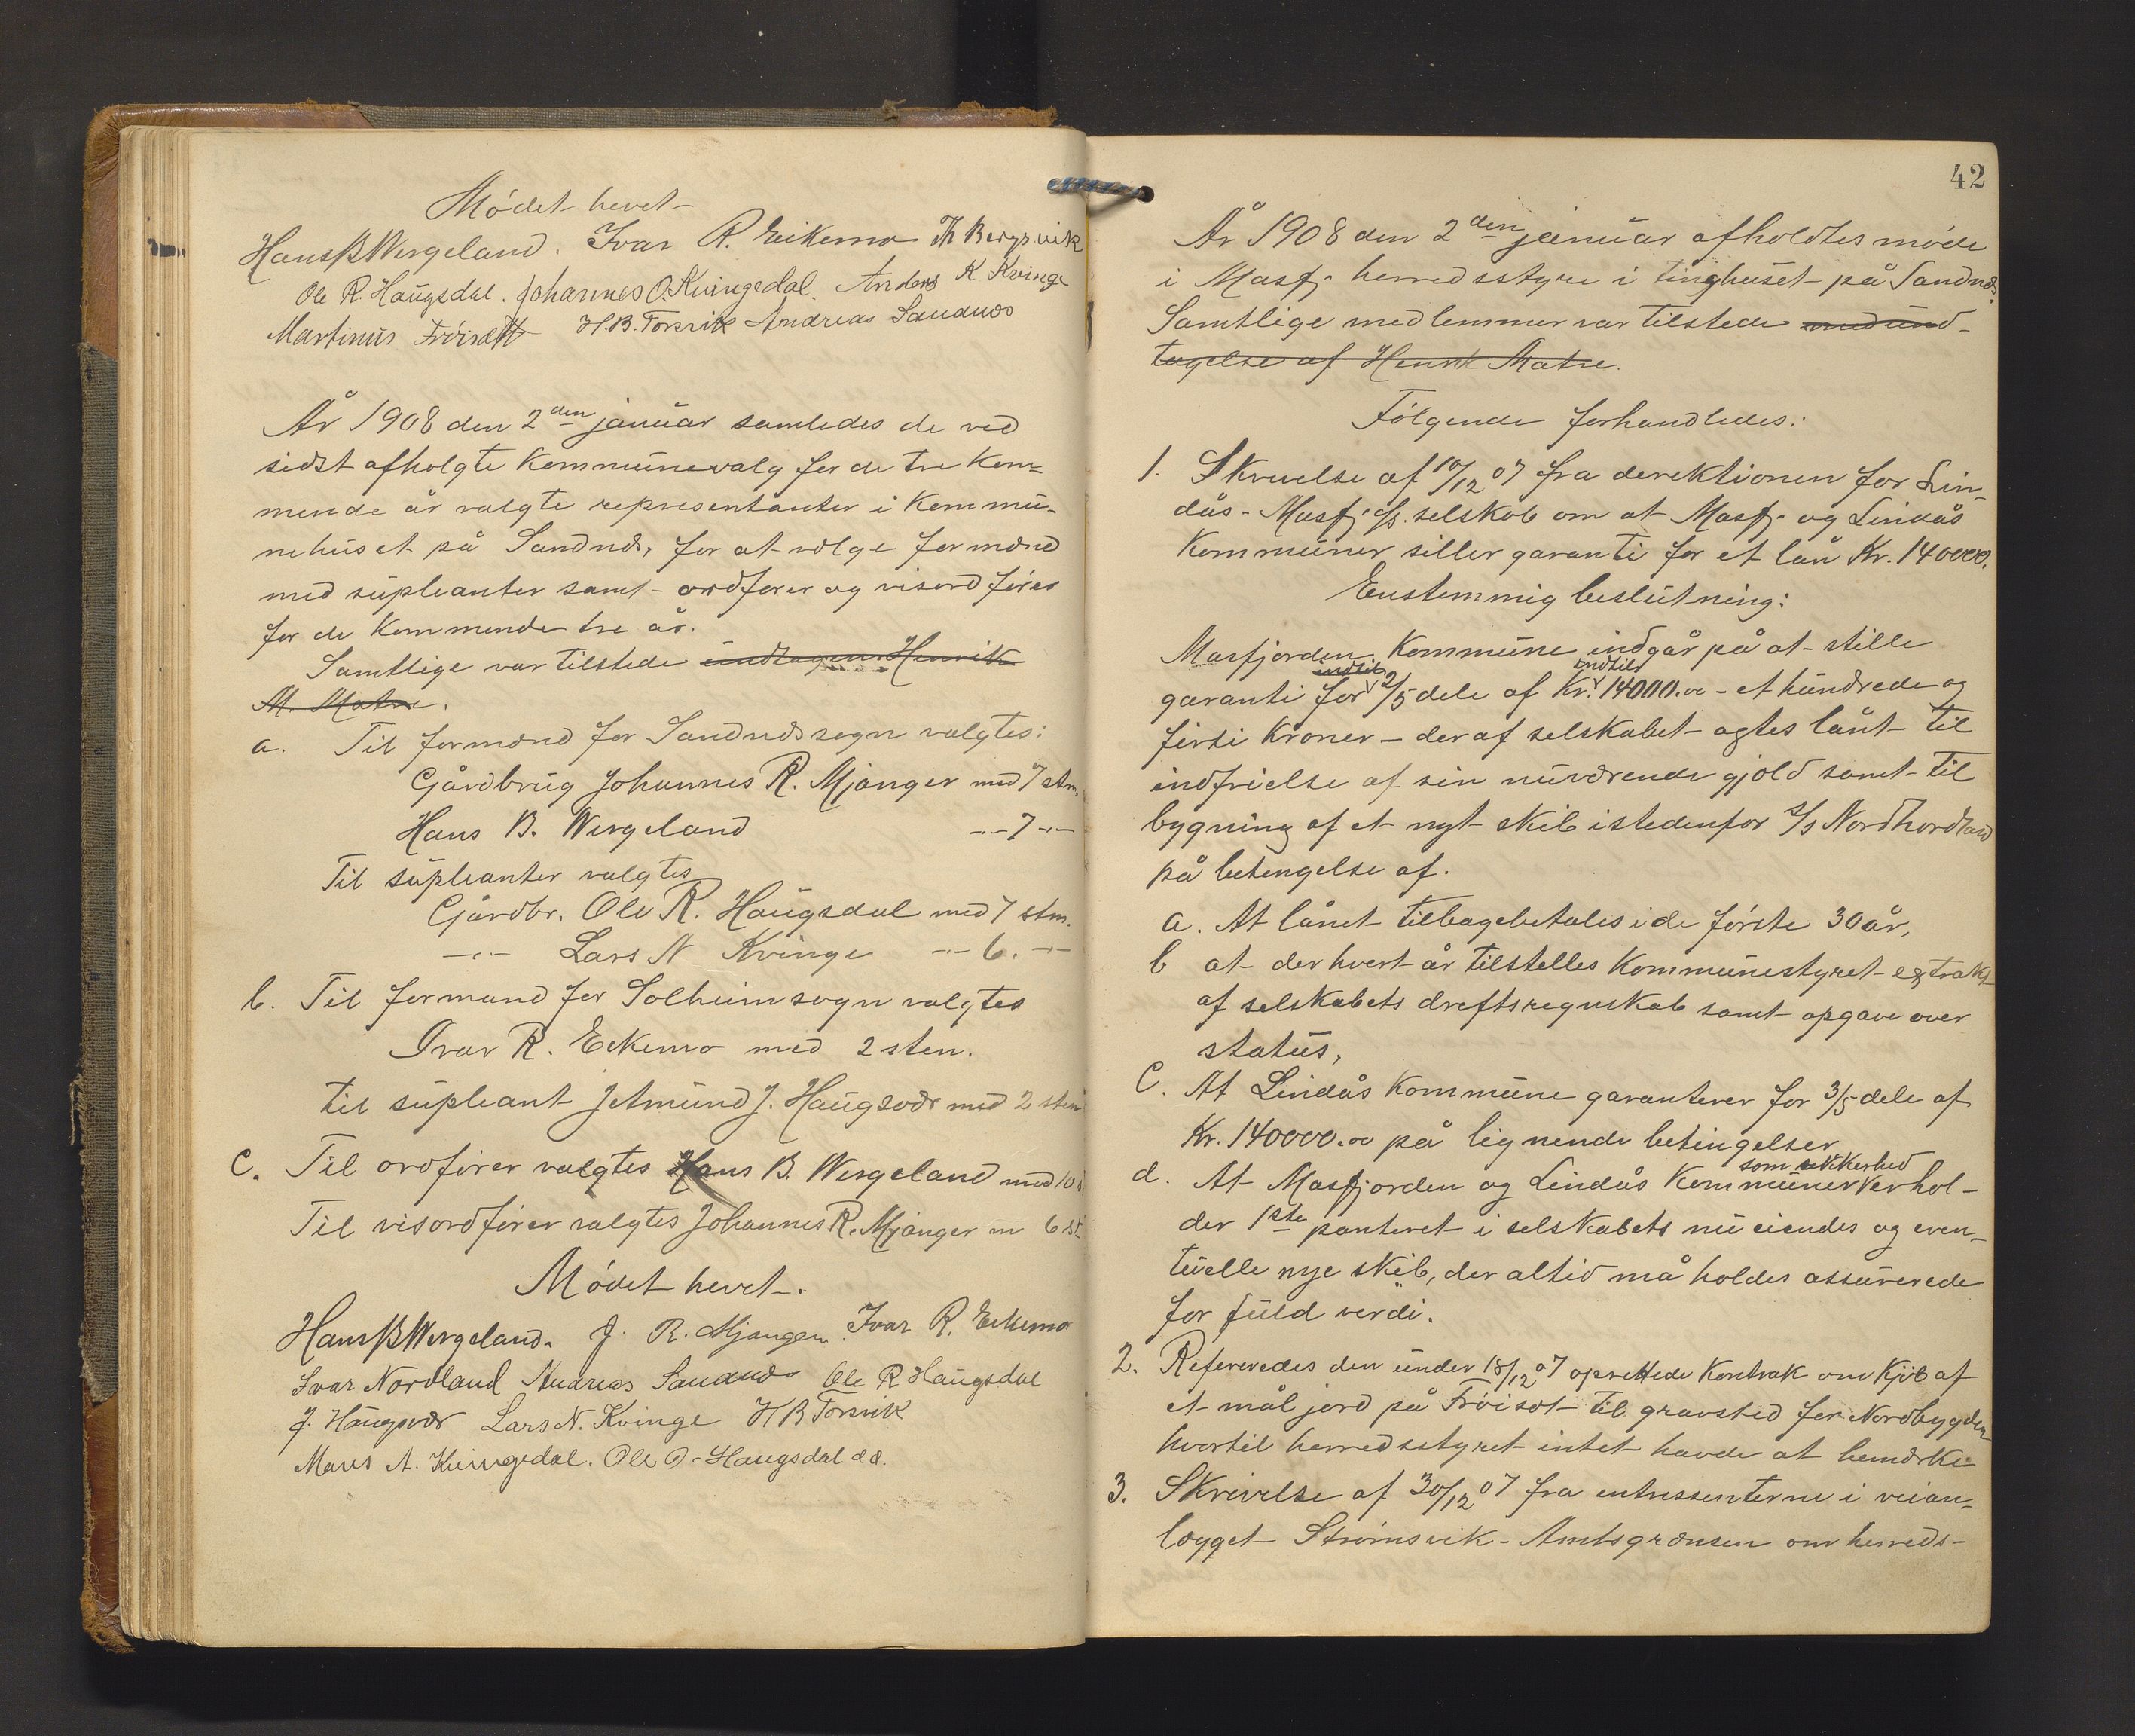 Mødet hevet
Hans B Wergeland. Ivar R. Eikemo Th Bergsvik
Ole R. Haugsdal. Johannes O. Kvingedal. Anders K Kvinge
Martinus Frøiset H.B. Torsvik Andreas Sandnæs
År 1908 den 2den januar samledes de ved
sidst afholgte kommunevalg for de tre kom=
mende år valgte representanter i kommu-
nehuset på Sandnæs, for at vælge formænd
med supleanter samt ordfører og visordfører
for de kommende tre år.
Samtlige var tilstede undtagen Henrik
M. Matre.
a. Til formænd for Sandnæs sogn valgtes:
Gårdbrug Johannes R. Mjanger med 7 stm.
Hans B. Wergeland -"- 7 -"-
Til supleanter valgtes
Gårdbr. Ole R. Haugsdal med 7 stm.
-"- Lars N Kvinge -"- 6. -"-
b. Til formand for Solheim sogn valgtes
Ivar R. Eekemo med 2 stem.
til supleant Jetmund J. Haugsvær med 2 stem
C. Til ordfører valgtes Hans B. Wergeland med 10 s
Til visordfører valgtes Johannes R. Mjanger m 6 st
Mødet hevet.
Hans B Wergeland. J. R. Mjanger. Ivar R. Eekemo
Ivar Nordland Andreas Sandnæs Ole R Haugsdal
J. Haugsvær Lars N. Kvinge H B Torsvik
Mons A. Kvingedal. Ole O. Haugsdal d.æ.
42
År 1908 den 2den januar afholdtes møde
i Masfj. herredsstyre i tinghuset på Sandnæs.
Samtlige medlemmer var tilstede med und-
tagelse af Henrik Matre.
Følgende forhandledes:
1. Skrivelse af 10/12 07 fra derektionen for Lin-
dås-Masfj. d/s. selskab om at Masfj. og Lindås
kommuner siller garanti for et lån Kr. 140000.
Enstemmig beslutning:
Masfjorden kommune indgår på at stille
indtil indtil
garanti for 2/5 dele af Kr. 14000.00 - et hundrede og
førti kroner - der af selskabet agtes lånt til
indfrielse af sin nuværende gjæld samt til
bygning af et nyt skib istedenfor d/s Nordhordland
på betengelse af.
a. At lånet tilbagebetales i de første 30 år,
b at der hvert år tilstelles kommunestyret egtrakt
af selskabets dreftsregnskab samt opgave over
status,
C. At Lindås kommune garanterer for 3/5 dele af
Kr. 140000.00 på lignende betingelser
som sikkerhed
d. At Masfjorden og Lindås kommuner erhol-
der 1ste panteret i selskabets nu eiendes og even-
tuelle nye skib, der altid må holdes assurerede
for fuld verdi.
2. Refereredes den under 18/12 07 oprettede kontrak om kjøb af
et mål jord på Frøiset til gravsted for Nordbygden
hvortil herredsstyret intet havde at bemærke
3. Skrivelse af 30/12 07 fra entressenterne i veian-
lægget Strømsvik-Amtsgrænsen om herreds-